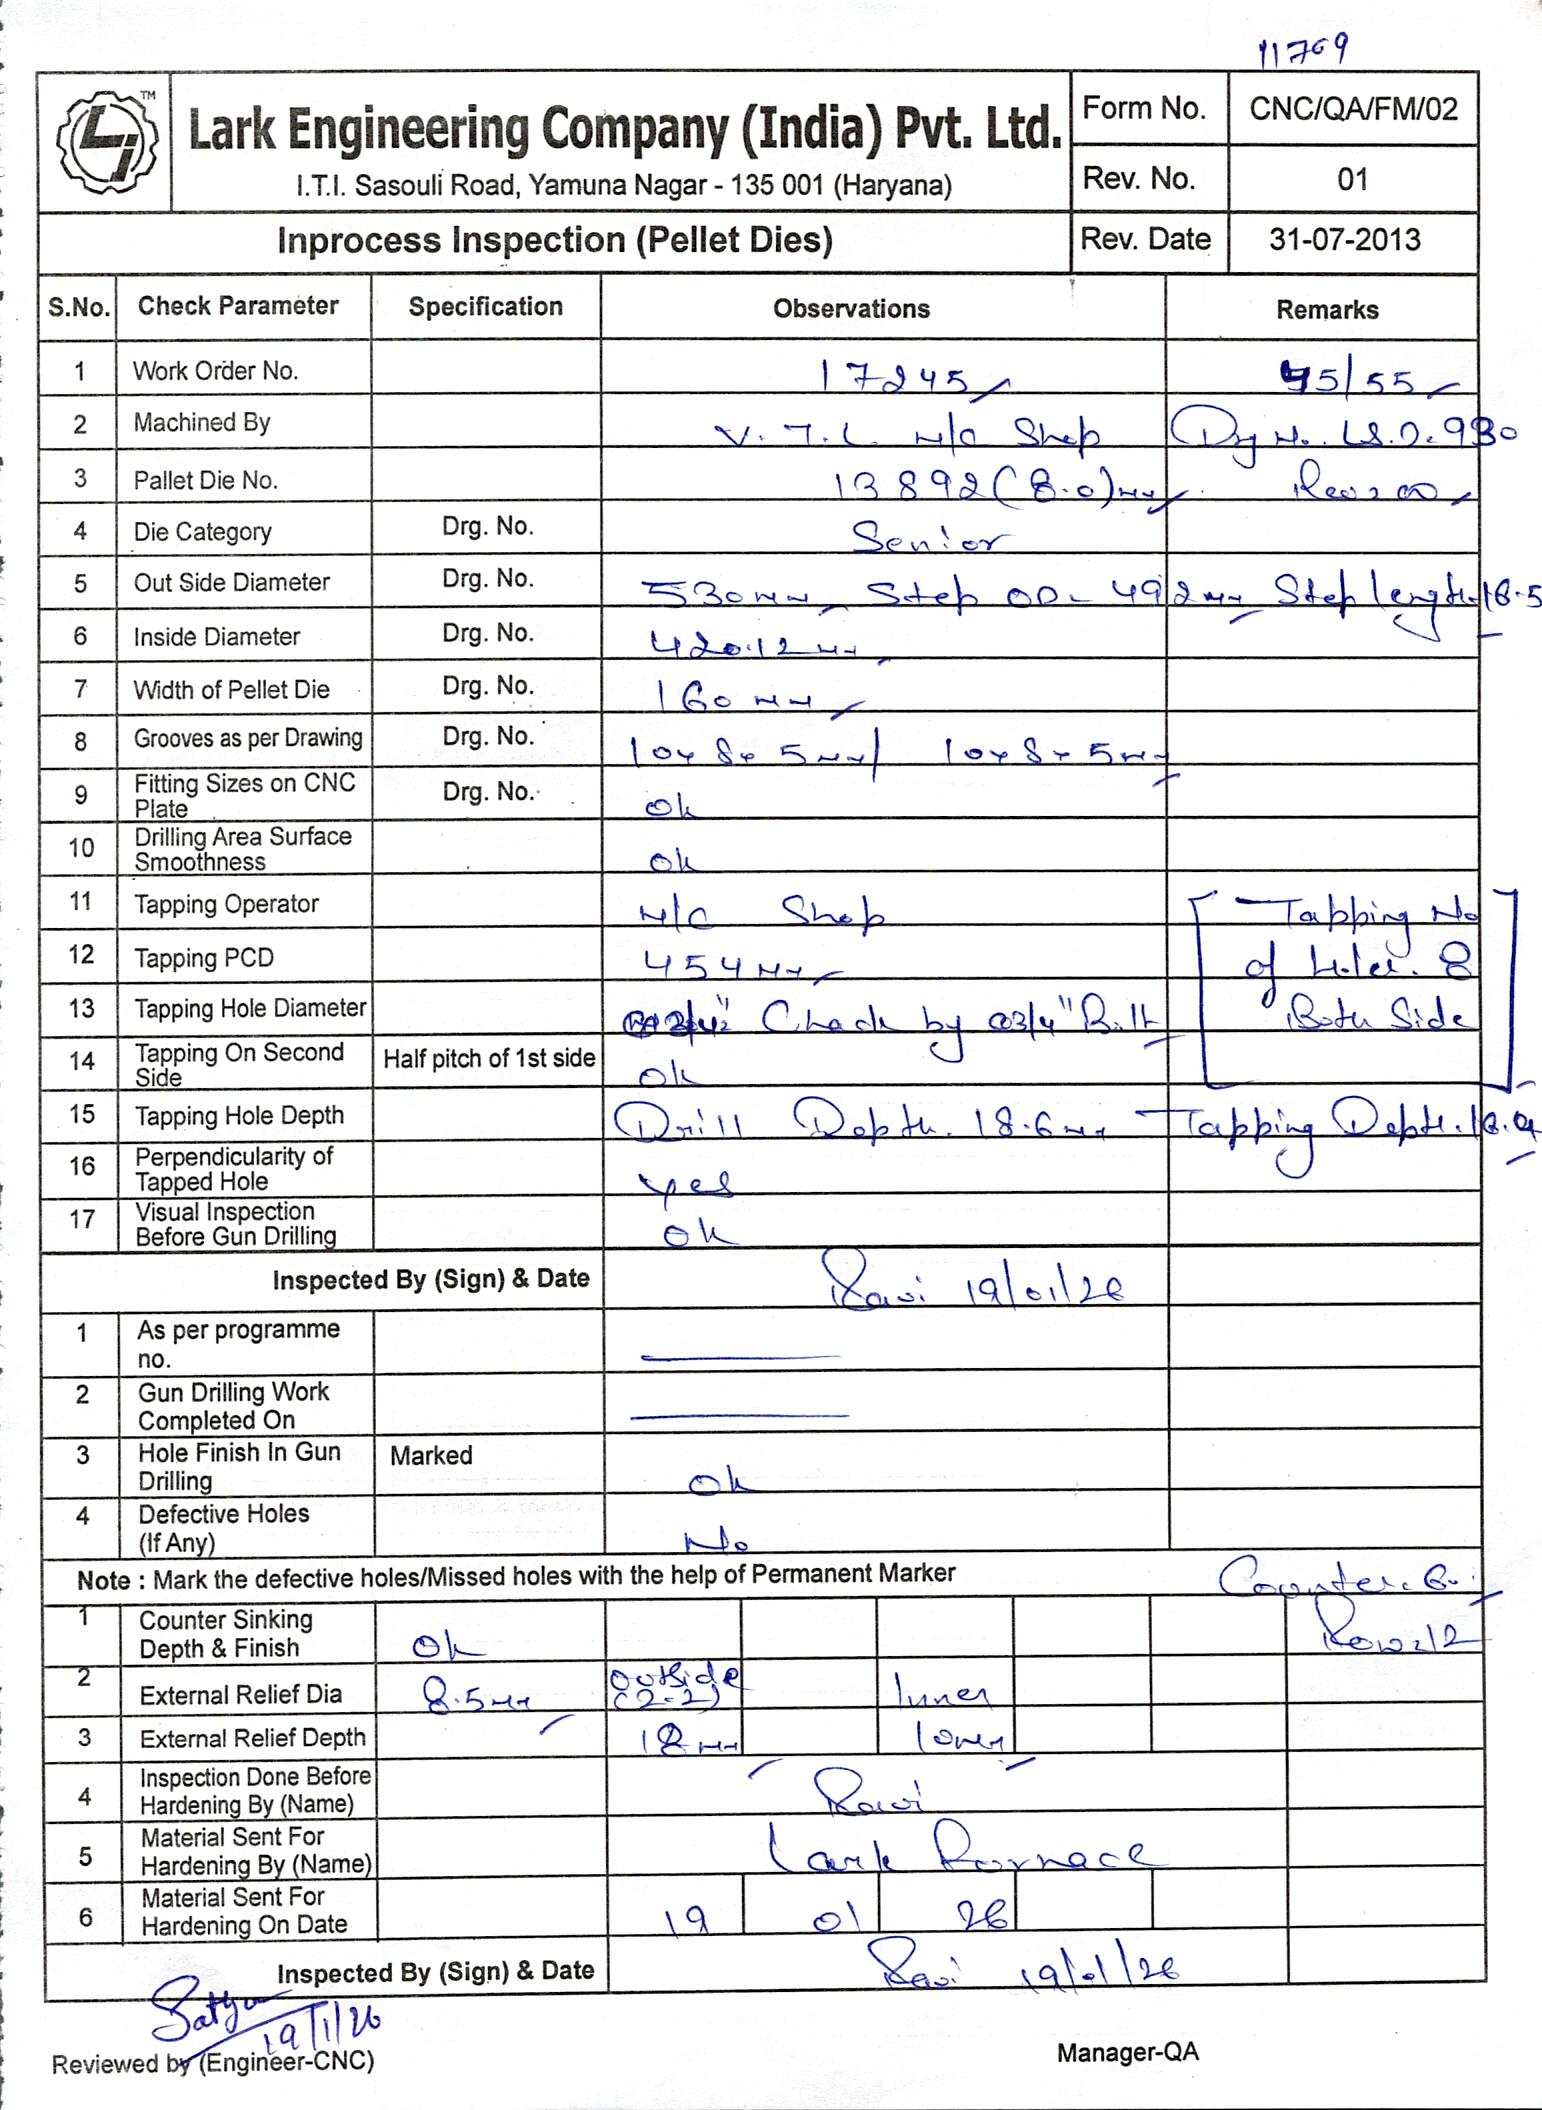 11709
LJ TM
Lark Engineering Company (India) Pvt. Ltd.
I.T.I. Sasouli Road, Yamuna Nagar - 135 001 (Haryana)
Form No. CNC/QA/FM/02
Rev. No. 01
Inprocess Inspection (Pellet Dies) Rev. Date 31-07-2013
S.No. Check Parameter Specification Observations Remarks
1 Work Order No. 17245 45/55
2 Machined By V.T.L. M/C Shop Drg No. L8.D.930
3 Pallet Die No. 13892 (8.0)mm Rev:00
4 Die Category Drg. No. Senior
5 Out Side Diameter Drg. No. 530mm Step OD- 492mm Step length-18.5
6 Inside Diameter Drg. No. 420.12mm
7 Width of Pellet Die Drg. No. 160mm
8 Grooves as per Drawing Drg. No. 10x8x5mm/ 10x8x5mm
9 Fitting Sizes on CNC Plate Drg. No. Ok
10 Drilling Area Surface Smoothness Ok
11 Tapping Operator M/C Shop Tapping No
12 Tapping PCD 454mm of Holes. 8
13 Tapping Hole Diameter 3/4" Check by 3/4" Bolt Both Side
14 Tapping On Second Side Half pitch of 1st side Ok
15 Tapping Hole Depth Drill Depth. 18.6mm Tapping Depth.
16 Perpendicularity of Tapped Hole yes
17 Visual Inspection Before Gun Drilling Ok
Inspected By (Sign) & Date Ravi 19/01/26
1 As per programme no.
2 Gun Drilling Work Completed On
3 Hole Finish In Gun Drilling Marked Ok
4 Defective Holes (If Any) No
Note : Mark the defective holes/Missed holes with the help of Permanent Marker Counter.
1 Counter Sinking Depth & Finish Ok Row:12
2 External Relief Dia 8.5mm Outside (2-2) Inner
3 External Relief Depth 18mm 10mm
4 Inspection Done Before Hardening By (Name) Ravi
5 Material Sent For Hardening By (Name) Lark Fornace
6 Material Sent For Hardening On Date 19 01 26
Inspected By (Sign) & Date Ravi 19/01/26
Satyam
19/1/26
Reviewed by (Engineer-CNC) Manager-QA